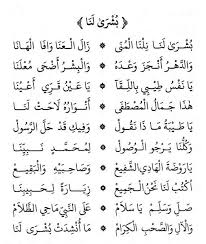 ﴿ بُشْرَىٰ لَنَا ﴾
بُشْرَىٰ لَنَا نِلْنَا الْمُنَى ۞ زَالَ الْعَنَا وَافَى الْهَنَا
وَالدَّهْرُ أَنْجَزَ وَعْدَهُ ۞ وَالْبِشْرُ أَضْحَى مُعْلَنَا
يَا نَفْسُ طِيبِي بِاللِّقَا ۞ يَا عَيْنُ قَرِّي أَعْيُنَا
هَذَا جَمَالُ الْمُصْطَفَى ۞ أَنْوَارُهُ لَاحَتْ لَنَا
يَا طَيْبَةُ مَا ذَا نَقُولُ ۞ وَفِيكِ قَدْ حَلَّ الرَّسُولُ
وَكُلُّنَا يَرْجُو الْوُصُولُ ۞ لِمُحَمَّدٍ نَبِيِّنَا
يَارَوْضَةَ الْهَادِي الشَّفِيعِ ۞ وَصَاحِبَيْهِ وَالْبَقِيعِ
أُكْتُبْ لَنَا نَحْنُ الْجَمِيعِ ۞ زِيَارَةً لِحَبِيبِنَا
صَلِّ وَسَلِّمْ يَا سَلَامُ ۞ عَلَى النَّبِيِّ مَاحِي الظَّلَامُ
وَالْآلِ وَالصَّحْبِ الْكِرَامُ ۞ مَا أُنْشِدَتْ بُشْرَى لَنَا